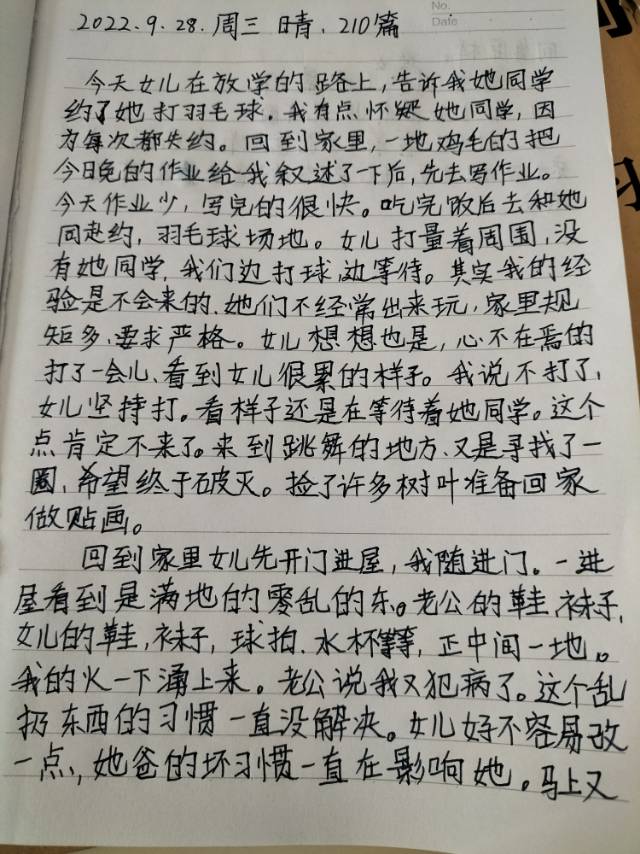 No.
Date
2022.9.28.周三 晴.210篇
今天女儿在放学的路上,告诉我她同学
约了她打羽毛球.我有点怀疑她同学,因
为每次都失约。回到家里,一地鸡毛的把
今日晚的作业给我叙述了一下后,先去写作业。
今天作业少,写完的很快。吃完饭后去和她
同赴约,羽毛球场地。女儿打量着周围,没
有她同学,我们边打球,边等待。其实我的经
验是不会来的.她们不经常出来玩,家里规
矩多、要求严格。女儿想想也是,心不在焉的
打了一会儿、看到女儿很累的样子。我说不打了,
女儿坚持打。看样子还是在等待着她同学。这个
点肯定不来了。来到跳舞的地方、又是寻找了一
圈、希望终于破灭。捡了许多树叶准备回家
做贴画。
回到家里女儿先开门进屋,我随进门。一进
屋看到是满地的零乱的东。老公的鞋,袜子,
女儿的鞋,袜子,球拍.水杯等,正中间一地。
我的火一下涌上来。老公说我又犯病了。这个乱
扔东西的习惯一直没解决。女儿好不容易改
一点、,她爸的坏习惯一直在影响她。马上又